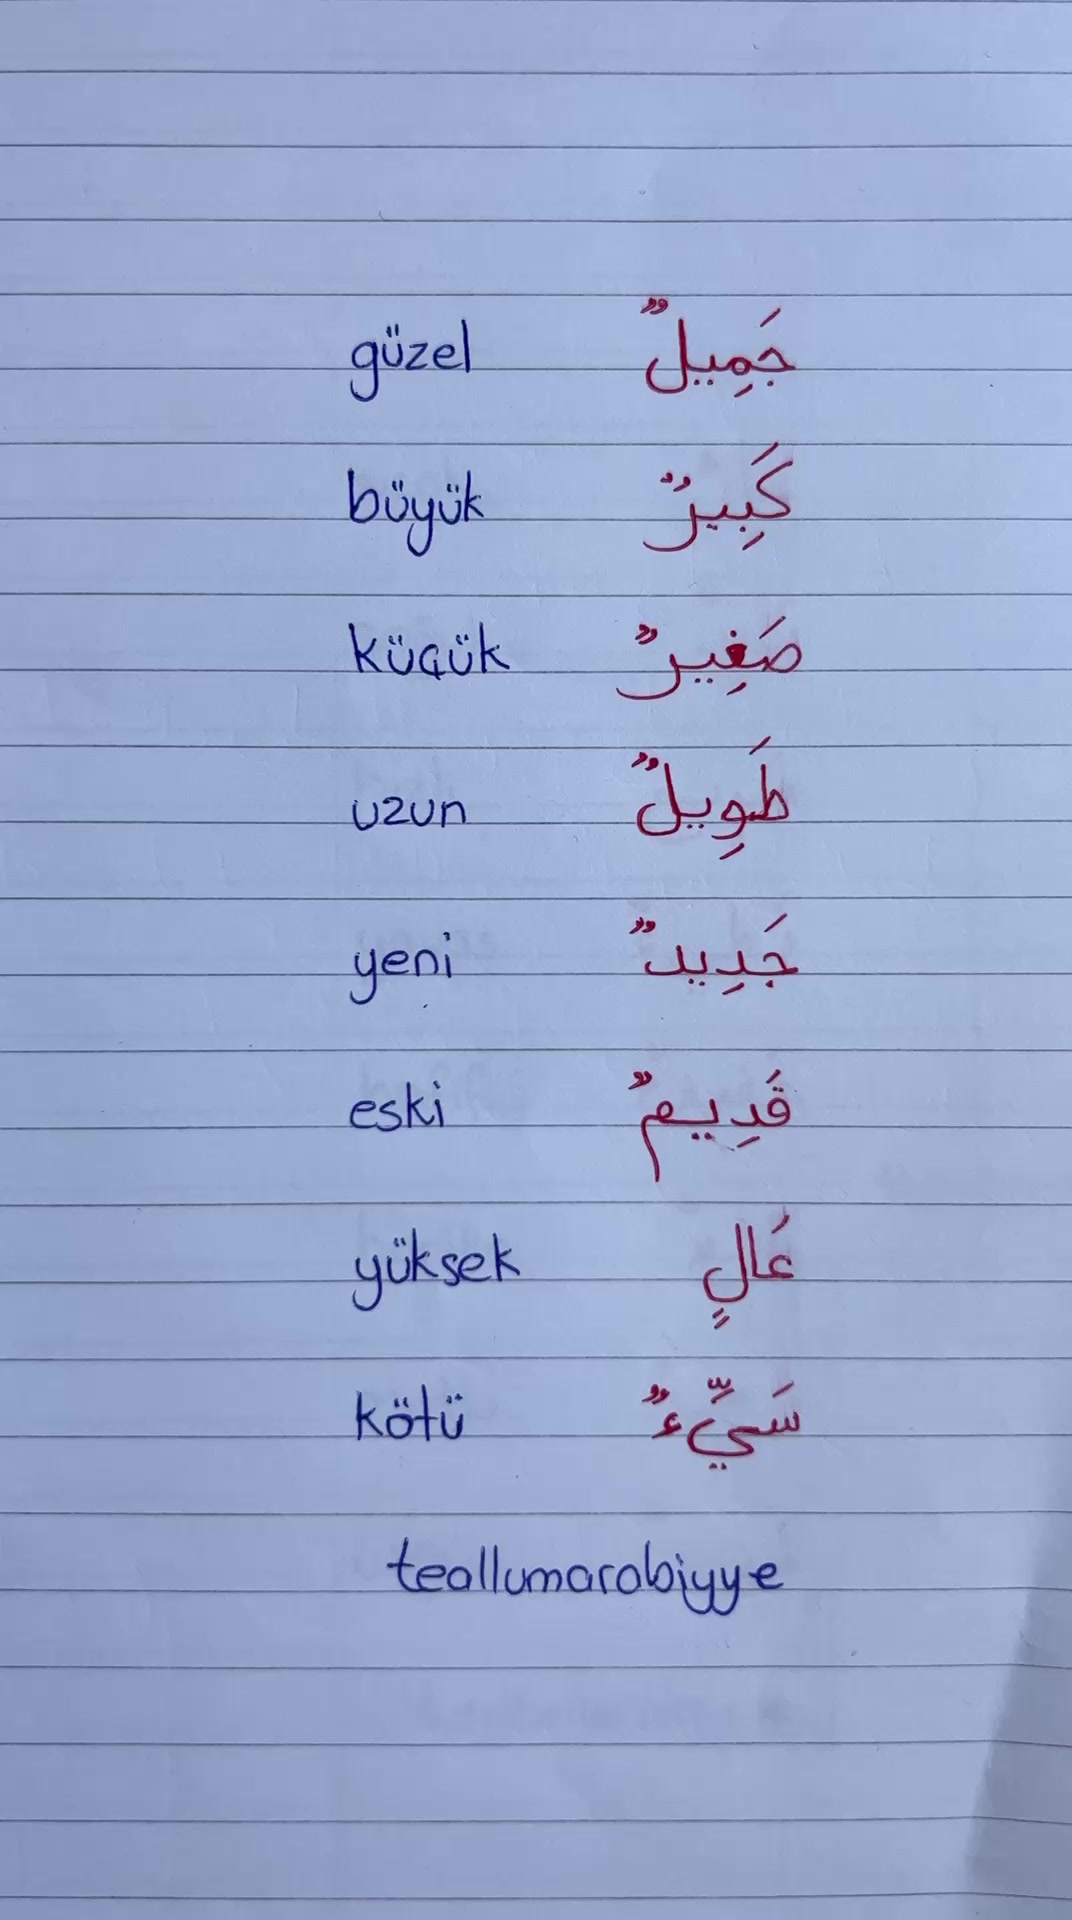 güzel جَمِيلٌ
büyük كَبِيرٌ
küçük صَغِيرٌ
uzun طَوِيلٌ
yeni جَدِيدٌ
eski قَدِيمٌ
yüksek عَالٍ
kötü سَيِّءٌ
teallumarabiyye